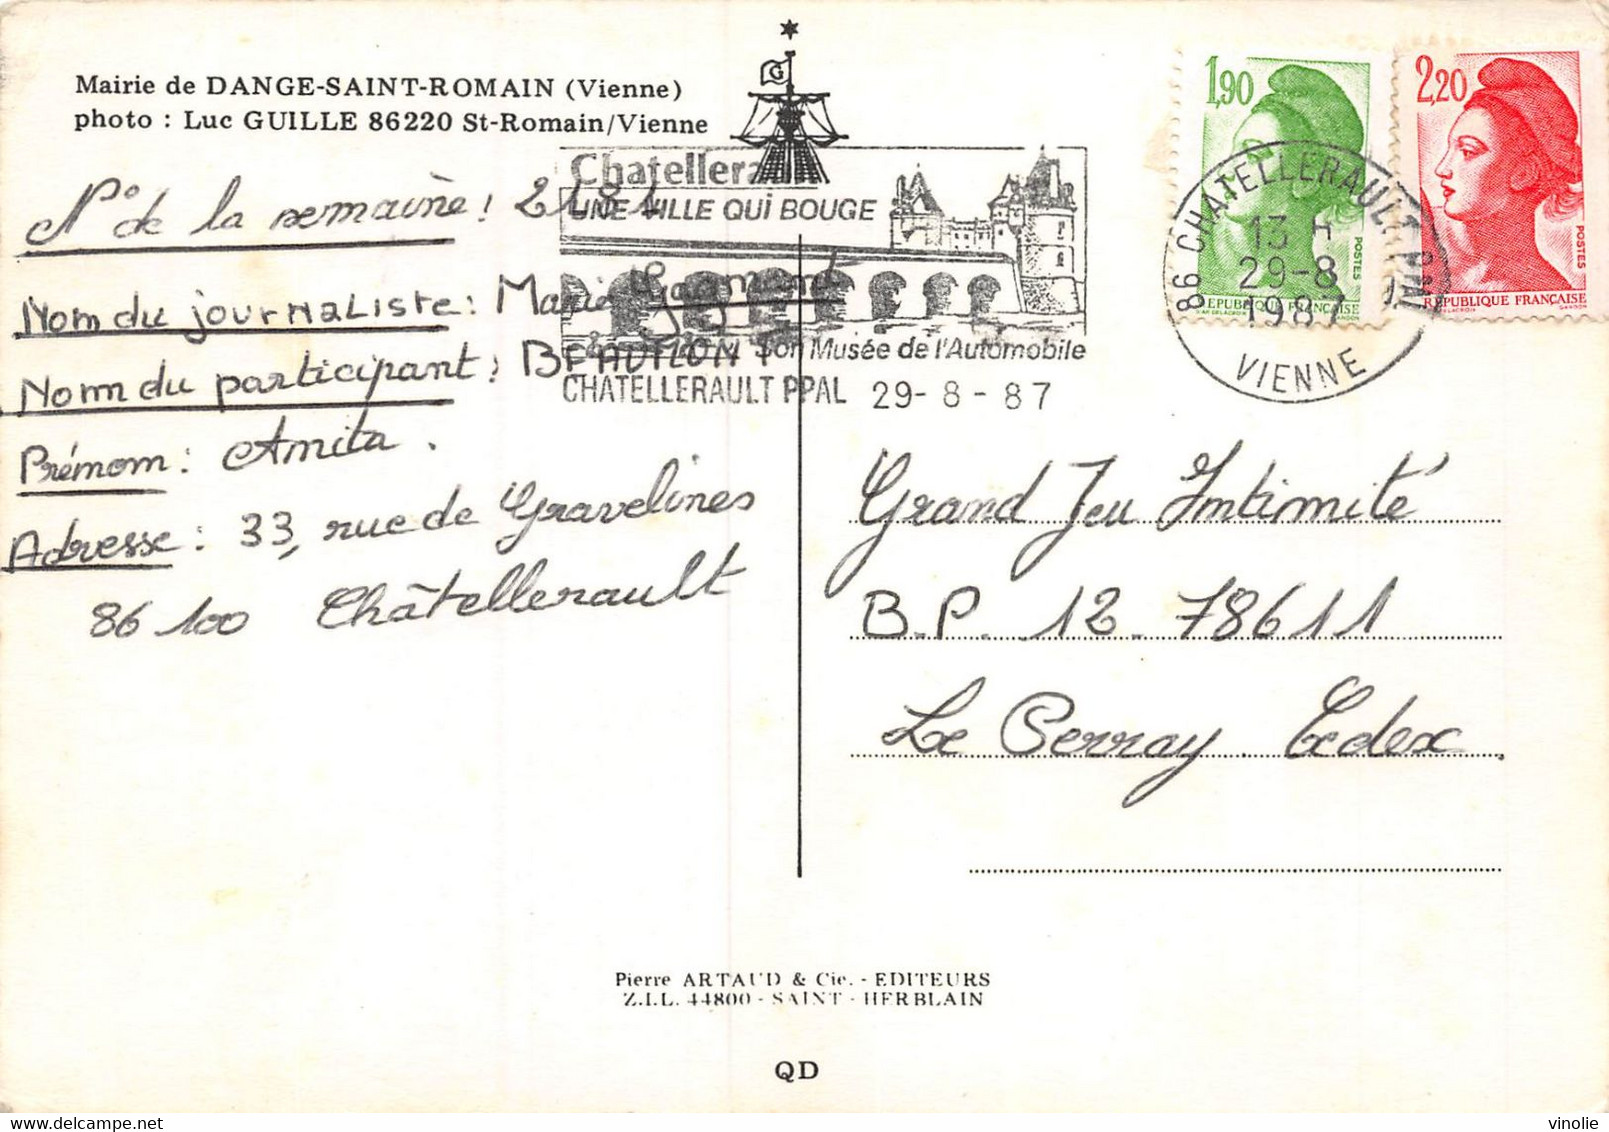 Mairie de DANGE-SAINT-ROMAIN (Vienne)
photo : Luc GUILLE 86220 St-Romain/Vienne
G
Chatellera
UNE VILLE QUI BOUGE
Son Musée de l'Automobile
CHATELLERAULT PPAL 29-8-87
1,90
POSTES
REPUBLIQUE FRANÇAISE
2,20
POSTES
REPUBLIQUE FRANÇAISE
86 CHATELLERAULT PPAL
13 H
29-8
1987
VIENNE
N° de la semaine : 2181
Nom du journaliste : Marie
Nom du participant : BEAUVILON
Prénom : Anita.
Adresse : 33, rue de Gravelines
86100 Châtellerault
Grand Jeu Intimité
B.P. 12. 78611
Le Perray. Cedex
Pierre ARTAUD & Cie. - EDITEURS
Z.I.L. 44800 - SAINT - HERBLAIN
QD
vinolie